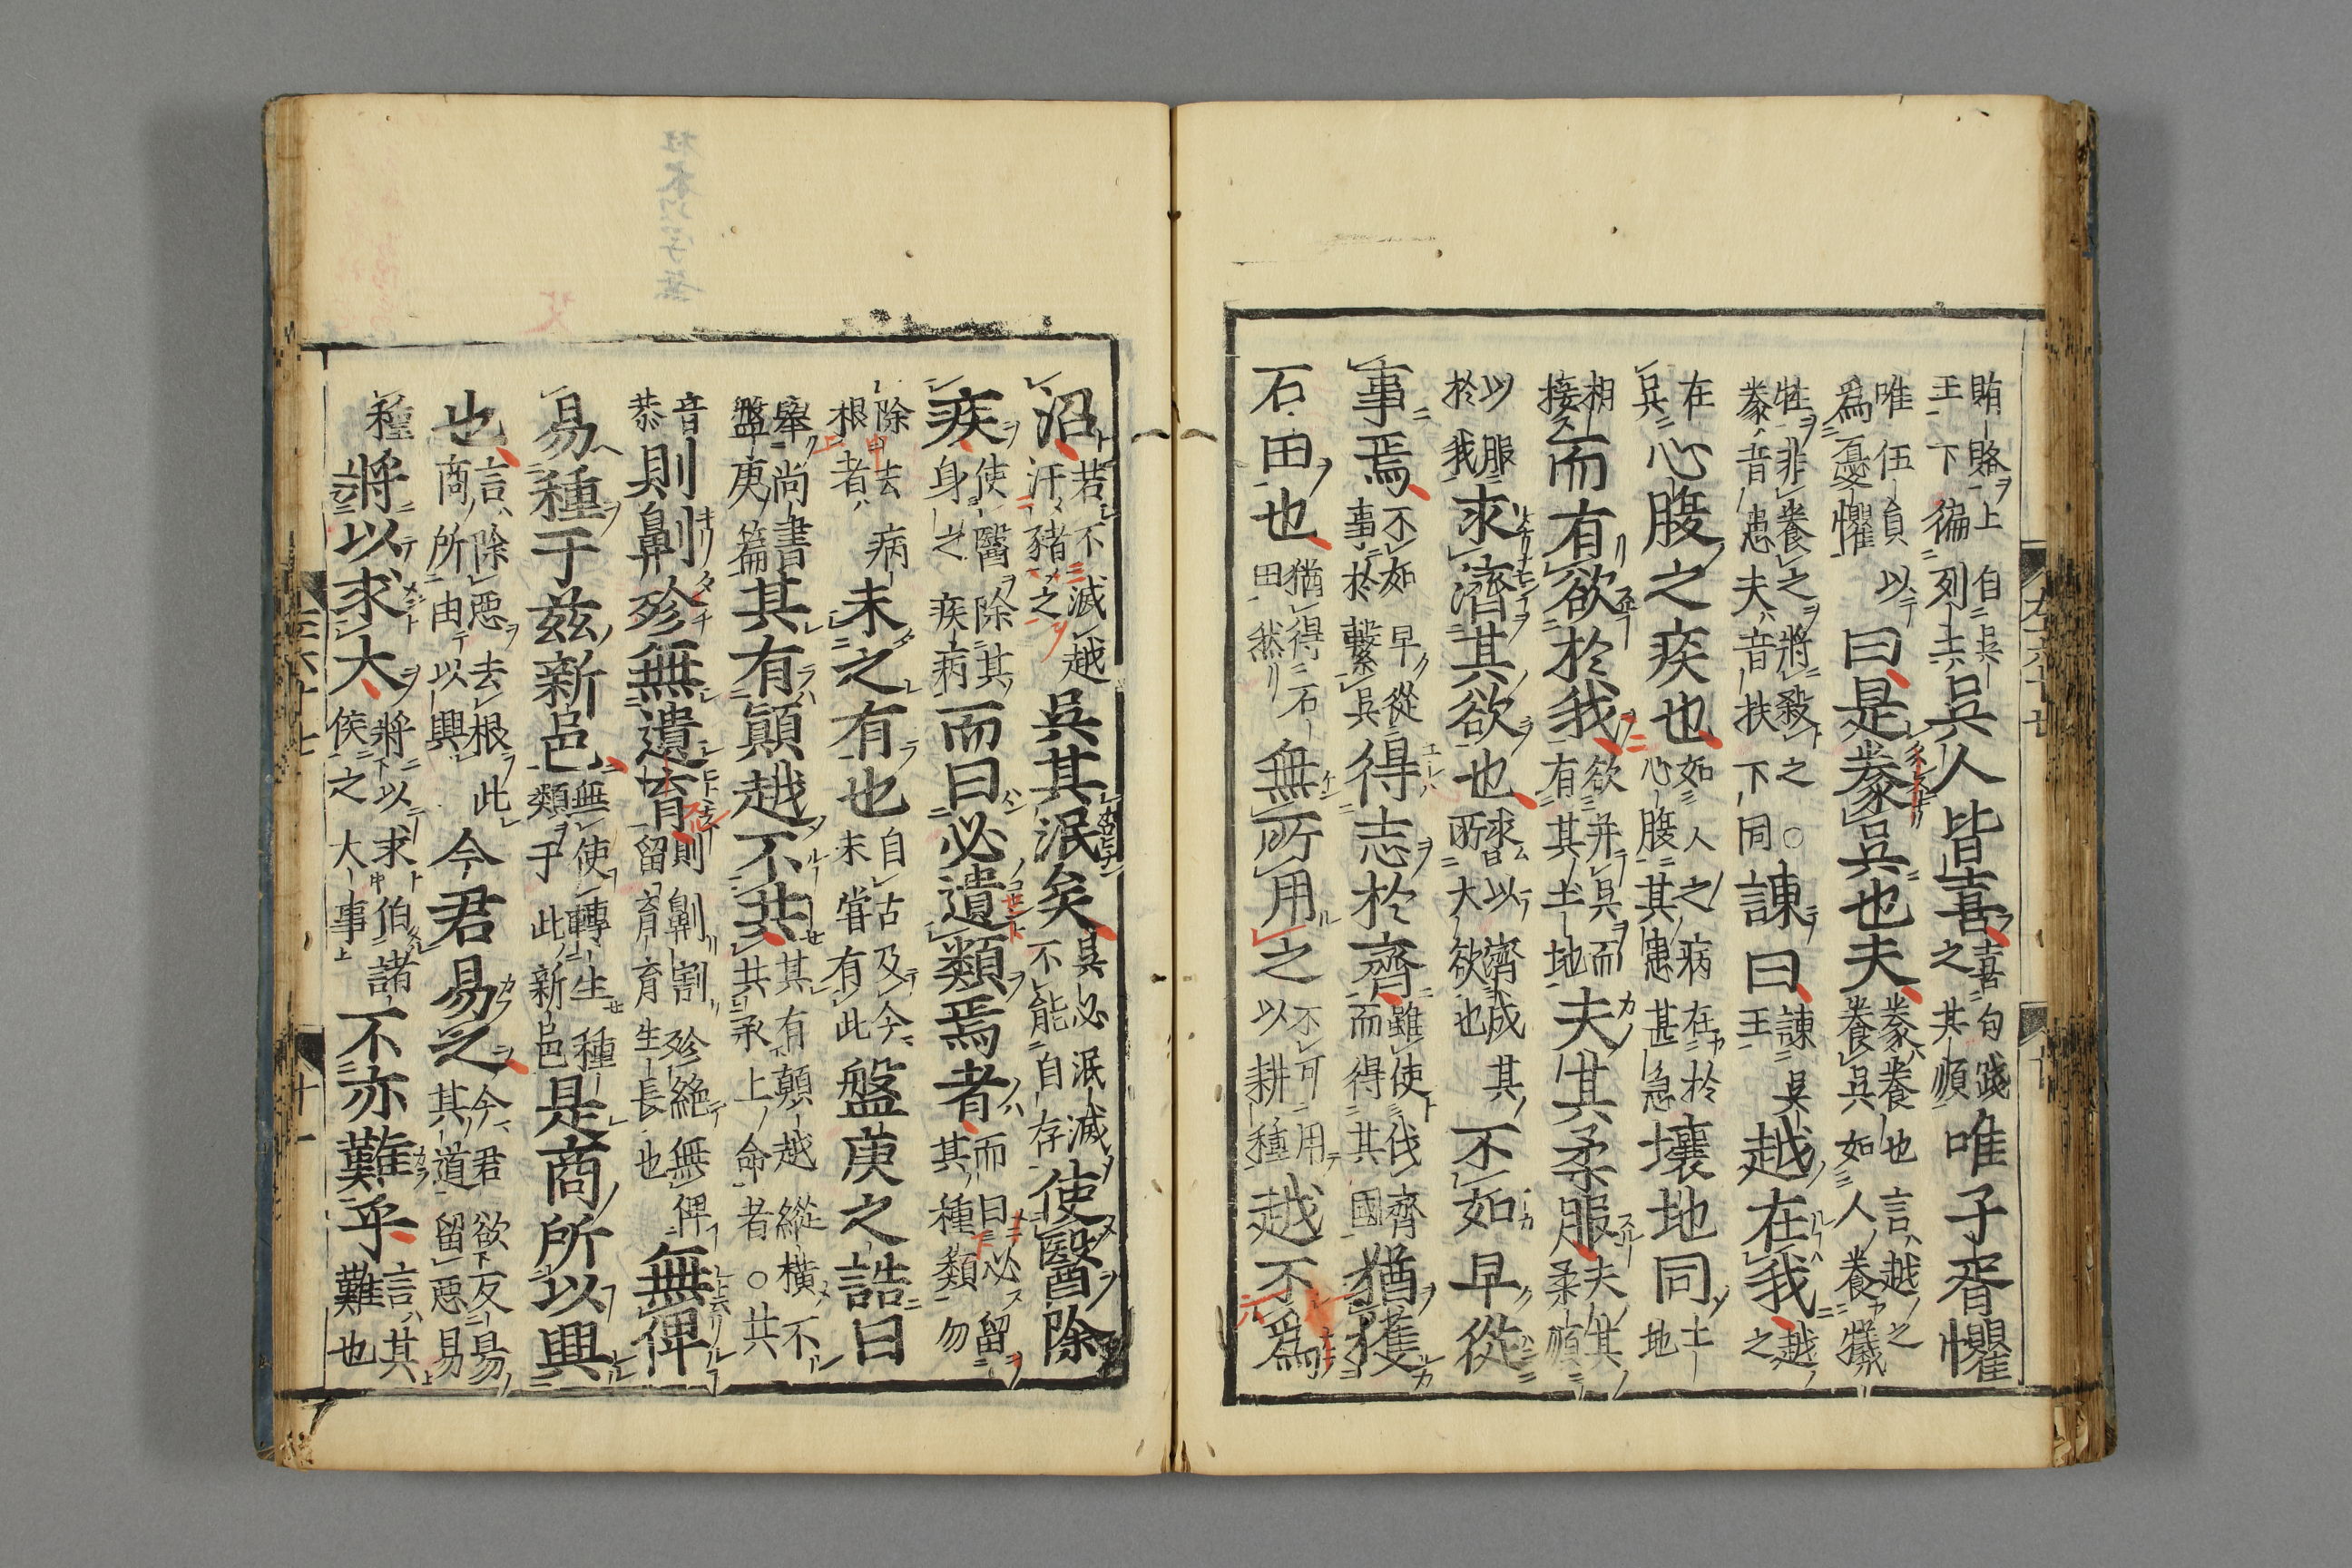 賄賂上自吳
王下徧列士
吳人皆喜
喜句踐
之共順
唯子胥懼
唯伍員以
爲憂懼
曰是豢吳也夫
豢養也言越之
養吳如人養犧
牲非養之將殺之○
豢音患夫音扶下同
諫曰
諫吳
王
越在我
越
之
在
吳
心腹之疾也
如人之病在於
心腹其患甚急
壤地同
土
地
相
接
而有欲於我
欲并吳而
有其土地
夫其柔服
夫其
柔順
以服
於我
求濟其欲也
求以濟成其
所大欲也
不如早從
事焉
不如早從
事於擊吳
得志於齊
雖使伐齊
而得其國
猶獲
石田也
猶得石
田然
無所用之
不可用
以耕種
越不爲
沼
若不滅越
汙豬之
吳其泯矣
吳必泯滅
不能自存
使醫除
疾
使醫除其
身之疾病
而曰必遺類焉者
而曰必留
其種類勿
除去病
根者
未之有也
自古及今
未嘗有此
盤庚之誥曰
舉尚書
盤庚篇
其有顚越不共
其有顛越縱橫不
共承上命者○共
音
恭
則劓殄無遺育
則劓割殄絶無俾
留育育生長也
無俾
易種于茲新邑
無使轉生種
類于此新邑
是商所以興
也
言除惡去根此
商所由以興
今君易之
今君欲反易
其道留惡易
種
將以求大
將以求伯諸
侯之大事
不亦難乎
言其
難也
十一